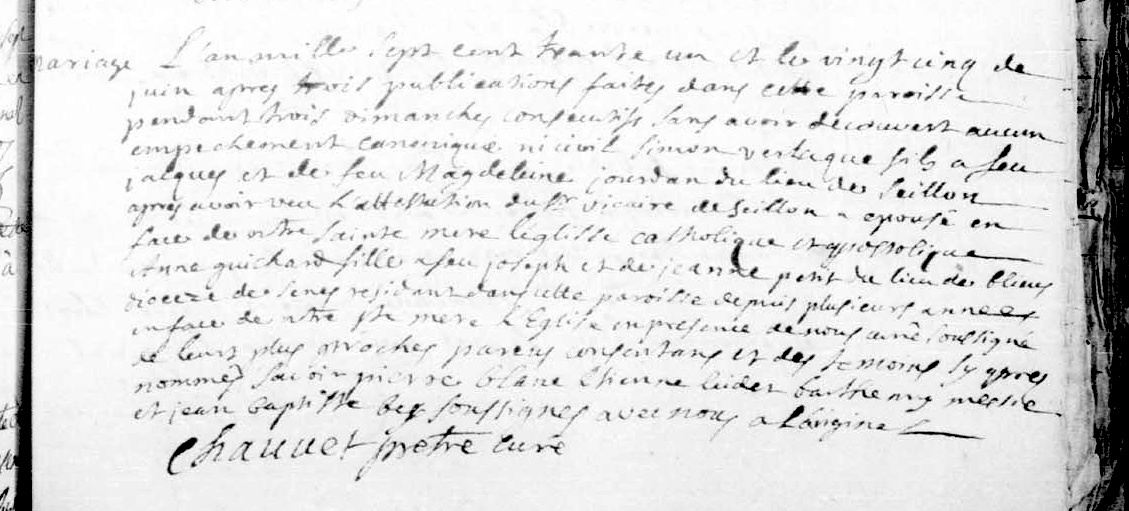 mariage L'an mille sept cent trante un et le vingt cinq de
juin apres trois publications faites dans cette paroisse
pendant trois dimanches consecutifs sans avoir decouvert aucun
empechement canonique ni civil simon verlaque fils a feu
jalques et de feu Magdeleine jourdan du lieu de Seillon
apres avoir veu l'attestation du Sr vicaire de Seillon a epousé en
face de nôtre sainte mere l'eglisse catholique et apostolique
Anne guichard fille a feu joseph et de jeanne petit du lieu de blieus
dioceze de senes residant dans cette paroisse depuis plusieurs années
en face de nôtre ste mere l'Eglise en presence de nous curé soussigné
de leurs plus proches parens consentans et des temoins sy apres
nommés savoir pierre blanc Etienne barthelemy
et jean baptiste soussignés avec nous a l'original
Chauvet prêtre curé